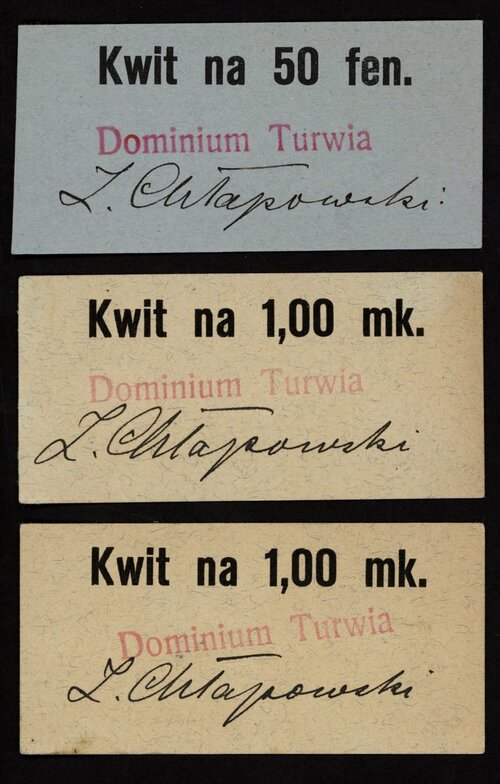 Kwit na 50 fen.
Dominium Turwia
Z. Chłapowski.
Kwit na 1,00 mk.
Dominium Turwia
Z. Chłapowski
Kwit na 1,00 mk.
Dominium Turwia
Z. Chłapowski